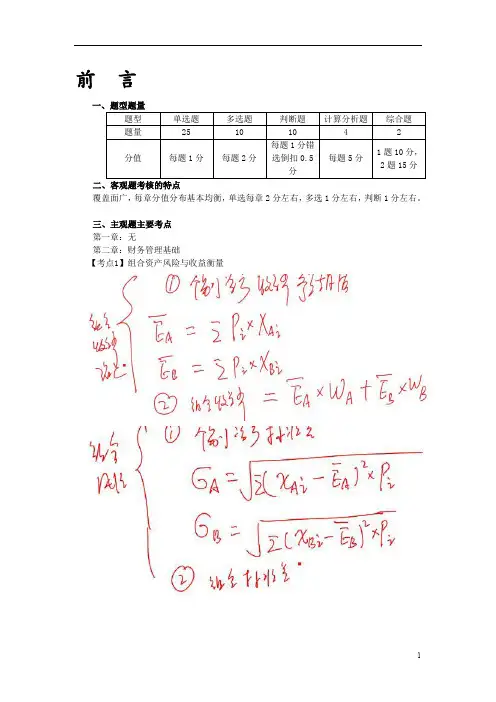 前 言
一、题型题量
题型 单选题 多选题 判断题 计算分析题 综合题
题量 25 10 10 4 2
分值 每题1分 每题2分 每题1分错选倒扣0.5分 每题5分 1题10分,2题15分
二、客观题考核的特点
覆盖面广,每章分值分布基本均衡,单选每章2分左右,多选1分左右,判断1分左右。
三、主观题主要考点
第一章:无
第二章:财务管理基础
【考点1】组合资产风险与收益衡量
① 个别资产收益率预期值
组合
收益率
E̅A = ΣPi×XAi
E̅B = ΣPi×XBi
② 组合收益率 = E̅A×WA+E̅B×WB
组合
风险
① 个别资产标准差
σA=√Σ(XAi-E̅A)²×Pi
σB=√Σ(XBi-E̅B)²×Pi
② 组合标准差
1